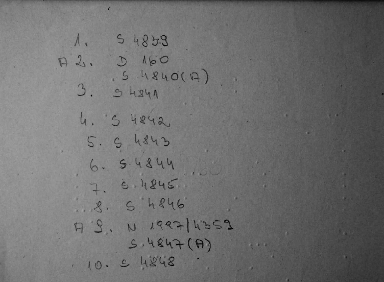 1. S 4839
A 2. D 160
S 4840(A)
3. S 4841
4. S 4842
5. S 4843
6. S 4844
7. S 4845
8. S 4846
A 9. N 1987/4359
S 4847(A)
10. S 4848